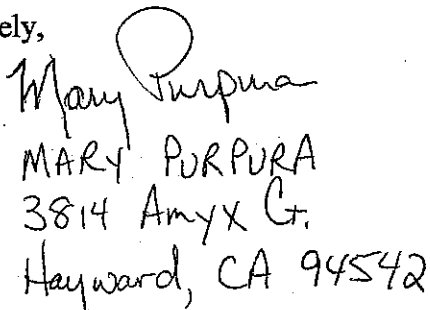 ely,
Mary Purpura
MARY PURPURA
3814 Amyx Ct.
Hayward, CA 94542